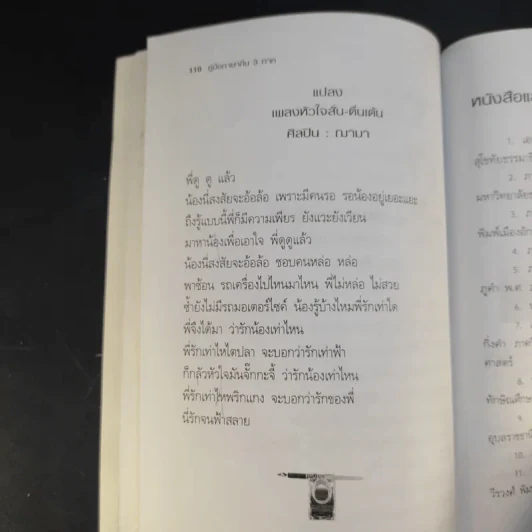 110 คู่มือภาษาถิ่น 3 ภาค
แปลง
เพลงหัวใจสั่น-ตื่นเต้น
ศิลปิน : ฌามา
พี่ดู ดู แล้ว
น้องนี่สงสัยจะอ้อล้อ เพราะมีคนรอ รอน้องอยู่เยอะแยะ
ถึงรู้แบบนี้พี่ก็มีความเพียร ยังแวะยังเวียน
มาหาน้องเพื่อเอาใจ พี่ดูดูแล้ว
น้องนี่สงสัยจะอ้อล้อ ชอบคนหล่อ หล่อ
พาซ้อน รถเครื่องไปไหนมาไหน พี่ไม่หล่อ ไม่สวย
ซ้ำยังไม่มีรถมอเตอร์ไซค์ น้องรู้บ้างไหมพี่รักเท่าใด
พี่จึงได้มา ว่ารักน้องเท่าไหน
พี่รักเท่าไหไตปลา จะบอกว่ารักเท่าฟ้า
ก็กลัวหัวใจมันจั๊กกะจี้ ว่ารักน้องเท่าไหน
พี่รักเท่าไหพริกแกง จะบอกว่ารักของพี่
นี่รักจนฟ้าสลาย
หนังสือแ
1. เอ
สุโขทัยธรรมาธิ
2. ภา
มหาวิทยาลัยร
3.
พิมพ์เมืองอัก
4.
5. ภ
ภูคำ พ.ศ.
6.
7.
กิ่งคำ ภาค
ศาสตร์
8.
ทักษิณศึกษ
9.
อุบลราชธานี
10.
11.
วีรวงศ์ พิม